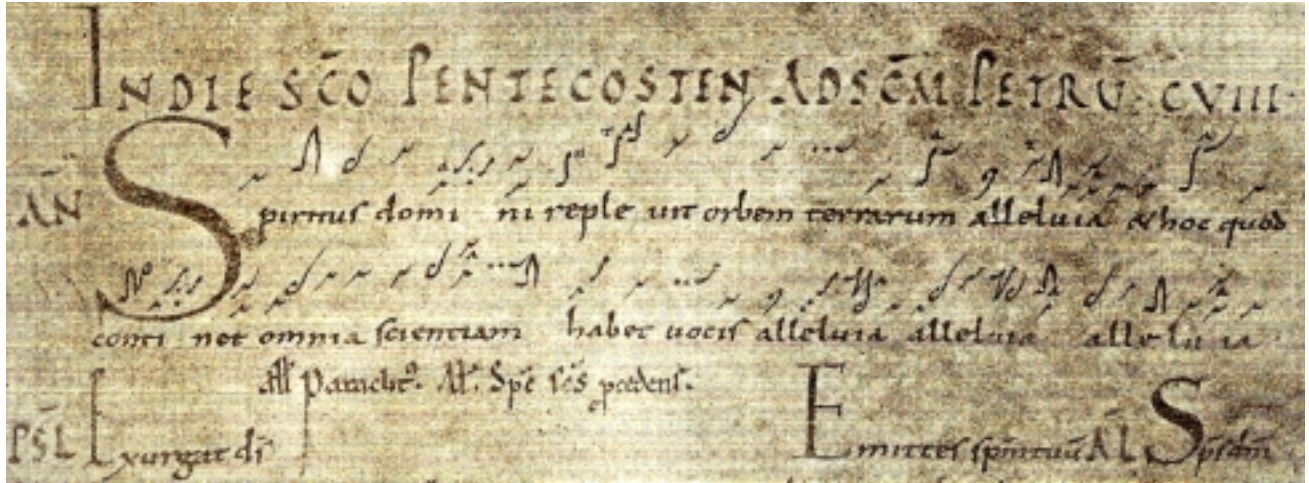 IN DIE SC̄O PENTECOSTEN AD SC̄M PETRŪ: CVIII·
AN̄ Spiritus domi ni reple uit orbem terrarum alleluia & hoc quod
conti net omnia scientiam habet uocis alleluia alleluia alle lu ia
All Paraclit᾿. All᾿. Spē scs̄ pcedens.
PSL̄ Exurgat ds̄ Emittes spm̄ tuū AL Sps dm̄